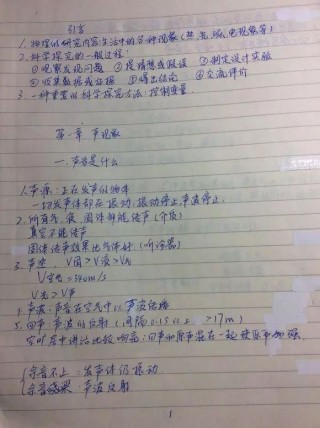 引言
1. 物理的研究内容:生活中的各种现象(热、光、磁、电现象等)
2. 科学探究的一般过程:
①观察发现问题 ②提猜想或假设 ③制定设计实验
④收集数据或证据 ⑤得出结论 ⑥交流评价
3. 一种重要的科学探究方法:控制变量
第一章 声现象
一.声音是什么
1.声源:正在发声的物体
一切发声体都在振动,振动停止声源停止.
2.所有气、液、固体都能传声(介质)
真空不能传声
固体传声效果比气体好.(听诊器)
3.声速 V固>V液>V气
V空气=340m/s
V光>V声
4.声波:声音在空气中以声波传播
5.回声:声波的反射(间隔0.1s以上 >17m)
空旷屋中讲话比较响亮:回声和原声混在一起使原声加强.
余音不止:发声体仍振动
余音绕梁:声波反射
1